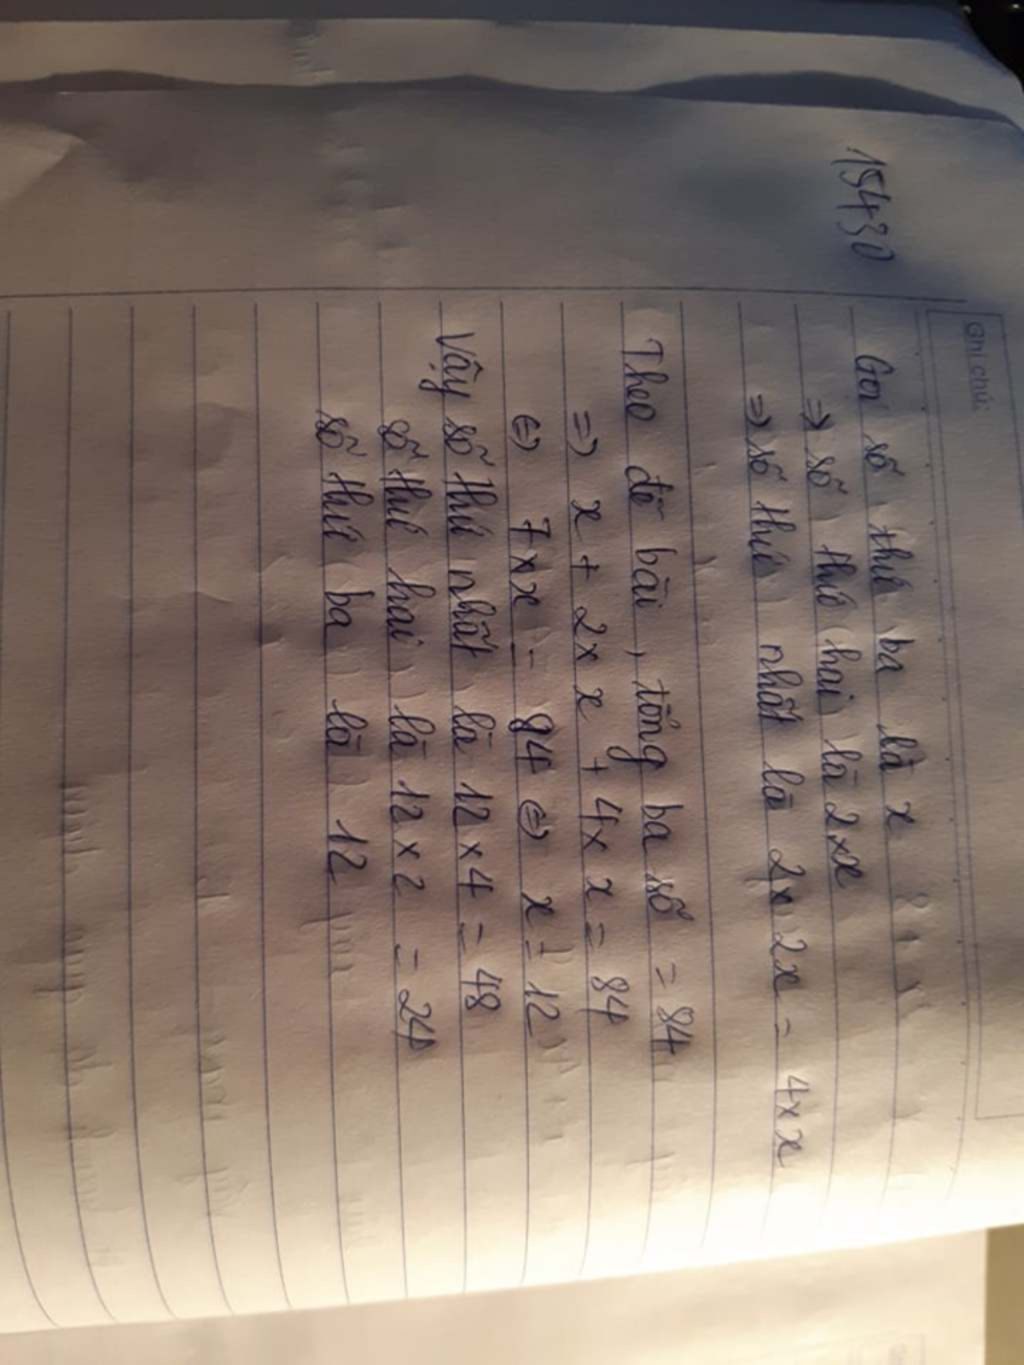 Ghi chú:
15430
Gọi số thứ ba là x
=> số thứ hai là 2xx
=> số thứ nhất là 2x 2x = 4xx
Theo đề bài, tổng ba số = 84
=> x + 2x x + 4x x = 84
<=> 7xx = 84 <=> x = 12
Vậy số thứ nhất là 12 x 4 = 48
số thứ hai là 12 x 2 = 24
số thứ ba là 12